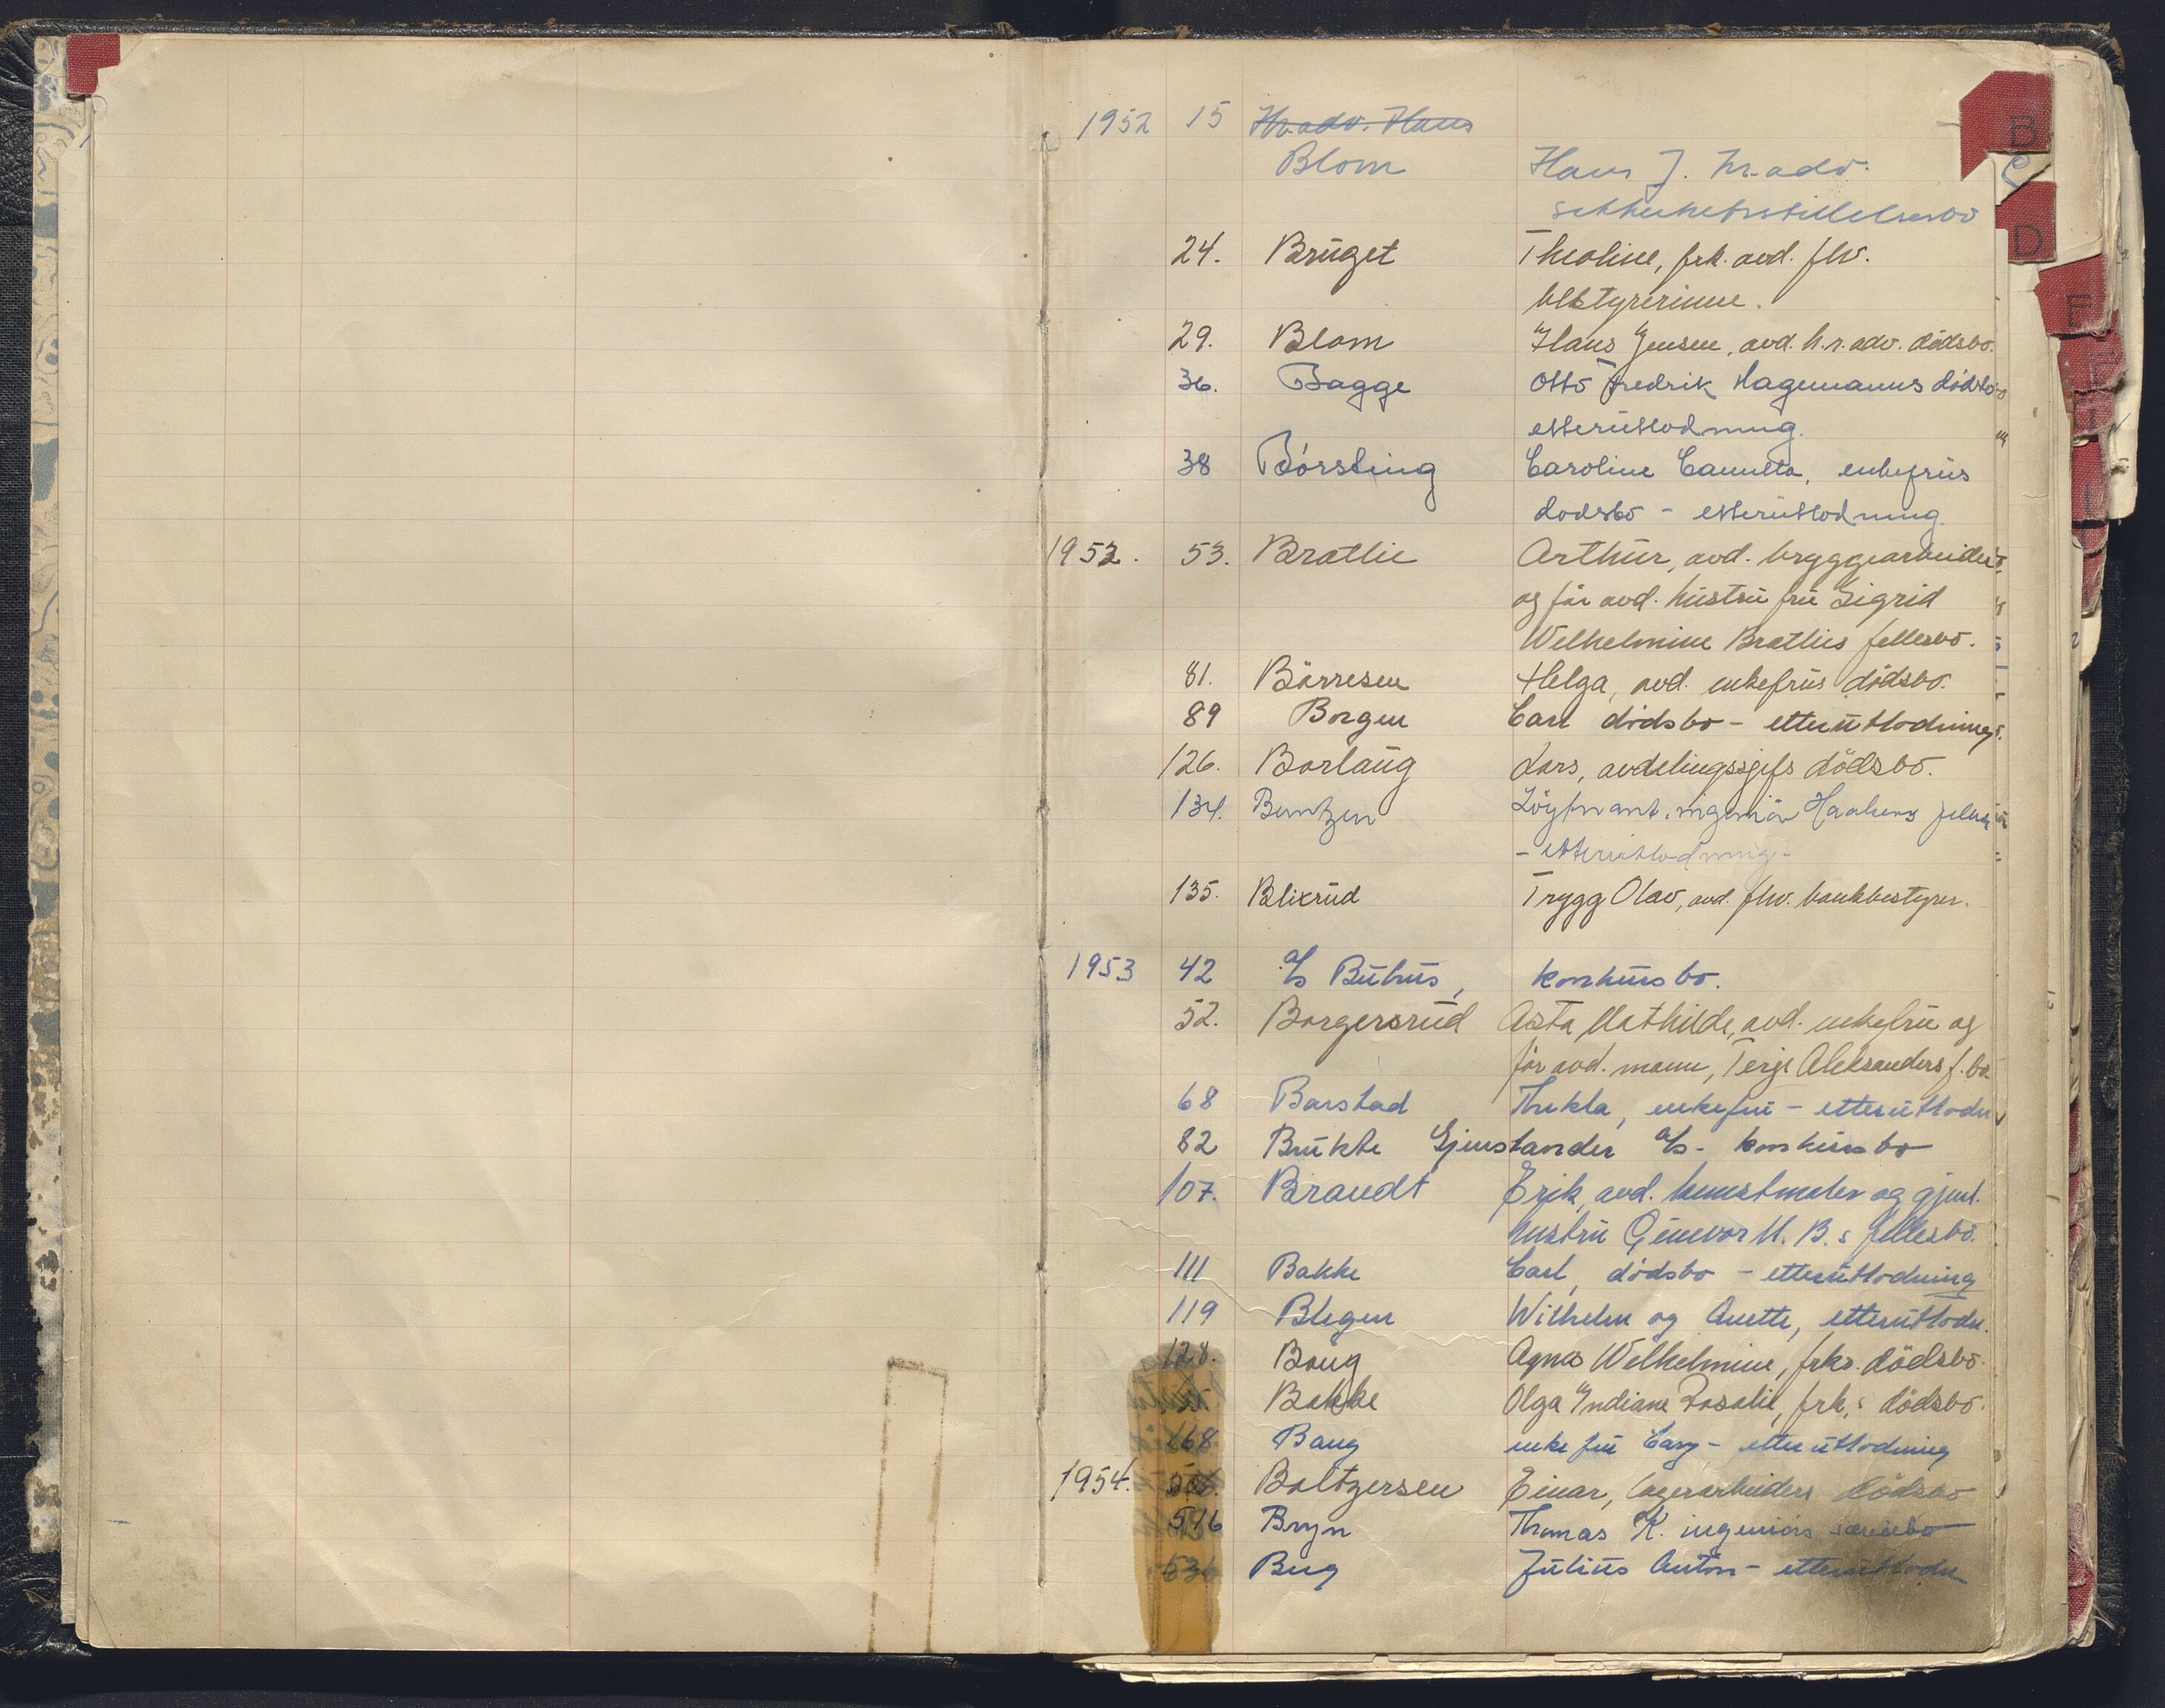 1952 15 Hr.adv. Hans
Blom Hans J. hr.adv.
sikkerhetsstillelsesbo
24. Brüget Theoline, frk. avd. fhv.
bestyrerinne.
29. Blom Hans Jensen, avd. h.r.adv. dödsbo.
36. Bagge Otto Fredrik Hagemanns dödsbo
etterütlodning.
38 Börsting Caroline Camilla, enkefrüs
dodsbo - etterütlodning.
1952. 53. Bratlie Arthür, avd. bryggearbeider
og för avd. hüstrü frü Sigrid
Wilhelmine Bratlies fellesbo.
81. Börresen Helga, avd. enkefrüs dödsbo.
89 Borgen Carl dödsbo - etterütlodning
126. Borlaüg Lars, avdelingssjefs dödsbo.
134. Berntzen Löytnant, ingeniör Haakons
- etterütlodning -
135. Blixrüd Trygg Olav, avd. fhv. bankbestyrer.
1953 42 A/s Bühüs, konkürsbo.
52. Borgersrüd Asta Mathilde, avd. enkefrü og
för avd. mann, Terje Aleksanders f.bo
68 Barstad Thekla, enkefrü - etterütlodn
82 Brükte Gjenstander A/s - konkürsbo
107. Brandt Erik, avd. kunstmaler og gjenl.
hüstrü Günvor M. B.s fellesbo.
111 Bakke Carl, dödsbo - etterütlodning
119 Blegen Wilhelm og Anette, etterütlodn.
128. Boüg Agnes Wilhelmine, frks. dödsbo.
Bakke Olga Indiane Rosalie, frk.s dödsbo.
168. Baug enkefrü Cary - etterütlodning
1954. Baltzersen Einar, lagerarbeiders dödsbo
596 Bryn Thomas K. ingeniörs særeiebo
536 Berg Jülius Anton - etterütlodn
B
C
D
E